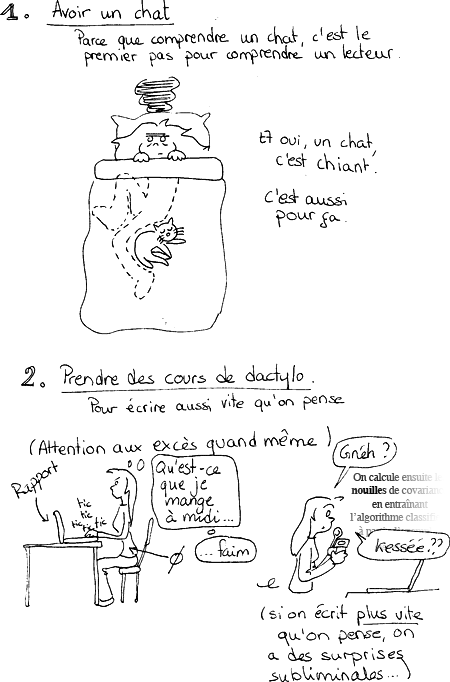 1. Avoir un chat
Parce que comprendre un chat, c'est le
premier pas pour comprendre un lecteur.
Et oui, un chat
c'est chiant.
C'est aussi
pour ça.
2. Prendre des cours de dactylo.
Pour écrire aussi vite qu'on pense
(Attention aux excès quand même)
Rapport
tic
tic
tic tic
tic
Qu'est-ce
que je
mange
à midi...
... faim
Gnéh ?
On calcule ensuite
nouilles de covarian
en entraînant
l'algorithme classif
kesséé??
(si on écrit plus vite
qu'on pense, on
a des surprises
subliminales...)